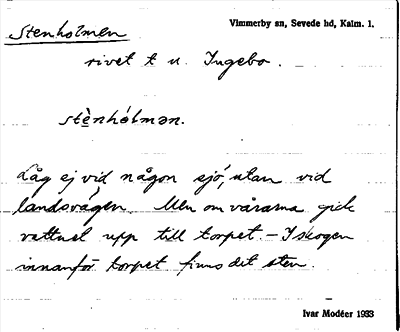 Stenholmen
Vimmerby sn, Sevede hd, Kalm. l.
rivet t u. Ingebo.
stènhólmən.
Låg ej vid någon sjö, utan vid
landsvägen. Men om vårarna gick
vattnet upp till torpet. – I skogen
innanför torpet finns det sten.
Ivar Modéer 1933